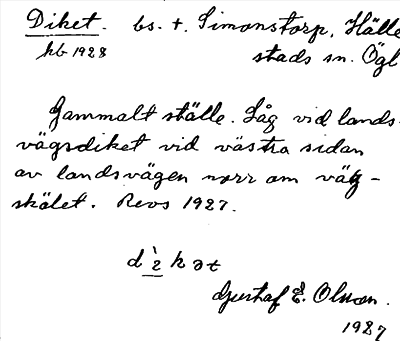 Diket. bs. t. Simonstorp, Hälle
kb 1928 stads sn. Ögl
Gammalt ställe. Låg vid lands-
vägsdiket vid västra sidan
av landsvägen norr om väg-
skälet. Revs 1927.
Gustaf E. Olsson.
1927